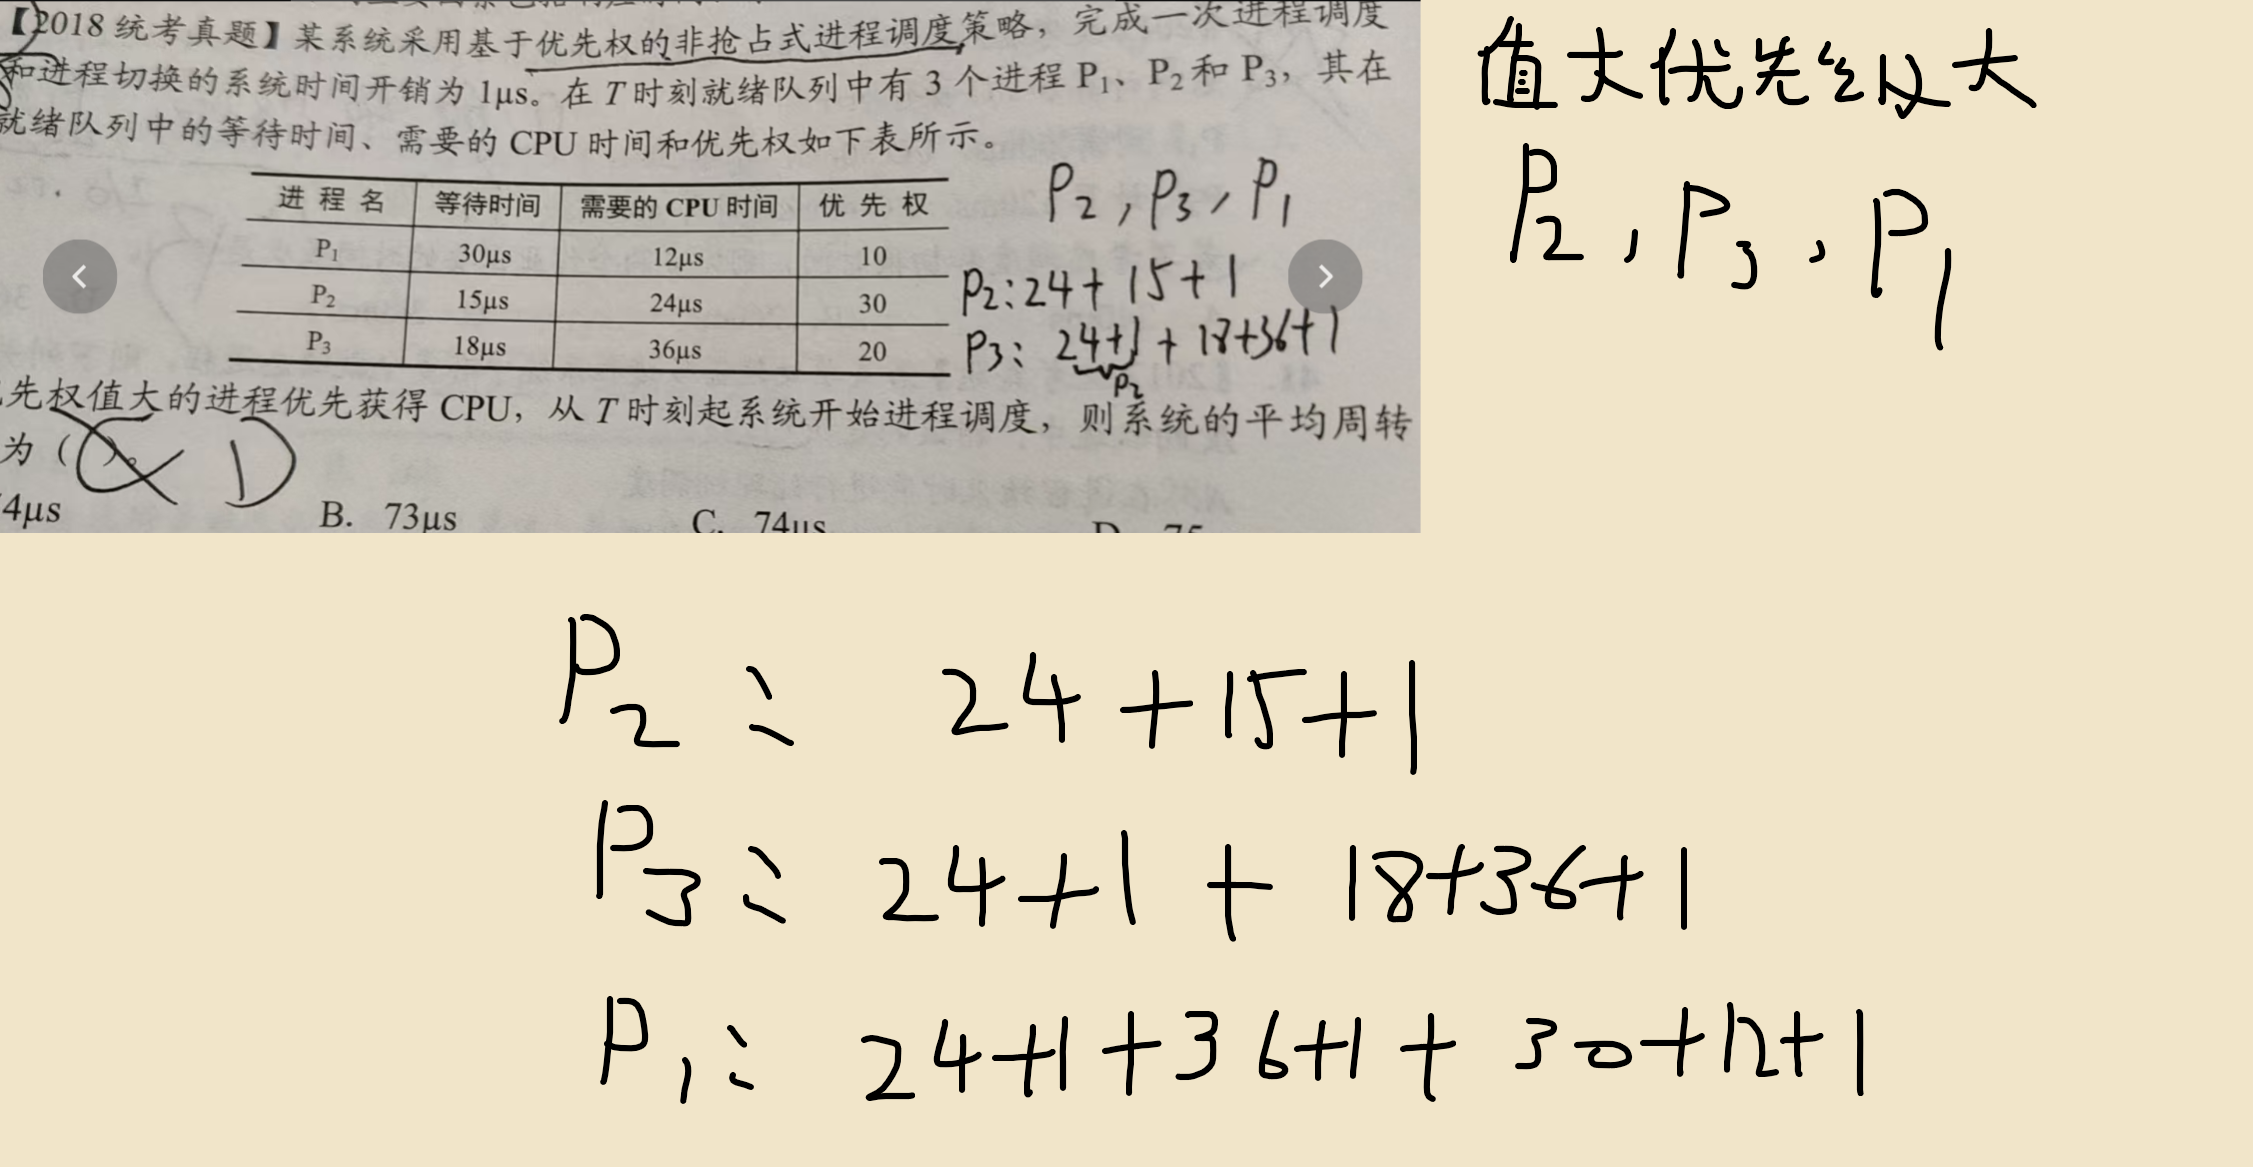 【2018统考真题】某系统采用基于优先权的非抢占式进程调度策略，完成一次进程调度
和进程切换的系统时间开销为1μs。在T时刻就绪队列中有3个进程P₁、P₂和P₃，其在
就绪队列中的等待时间、需要的CPU时间和优先权如下表所示。
进程名 等待时间 需要的CPU时间 优先权
P₁ 30μs 12μs 10
P₂ 15μs 24μs 30
P₃ 18μs 36μs 20
P₂, P₃, P₁
P₂:24+15+1
P₃: 24+1+18+36+1
P₂
先权值大的进程优先获得CPU，从T时刻起系统开始进程调度，则系统的平均周转
为( )。
D
4μs B. 73μs C. 74μs D. 75
值大优先级大
P₂, P₃, P₁
P₂: 24+15+1
P₃: 24+1+18+36+1
P₁: 24+1+36+1+30+12+1